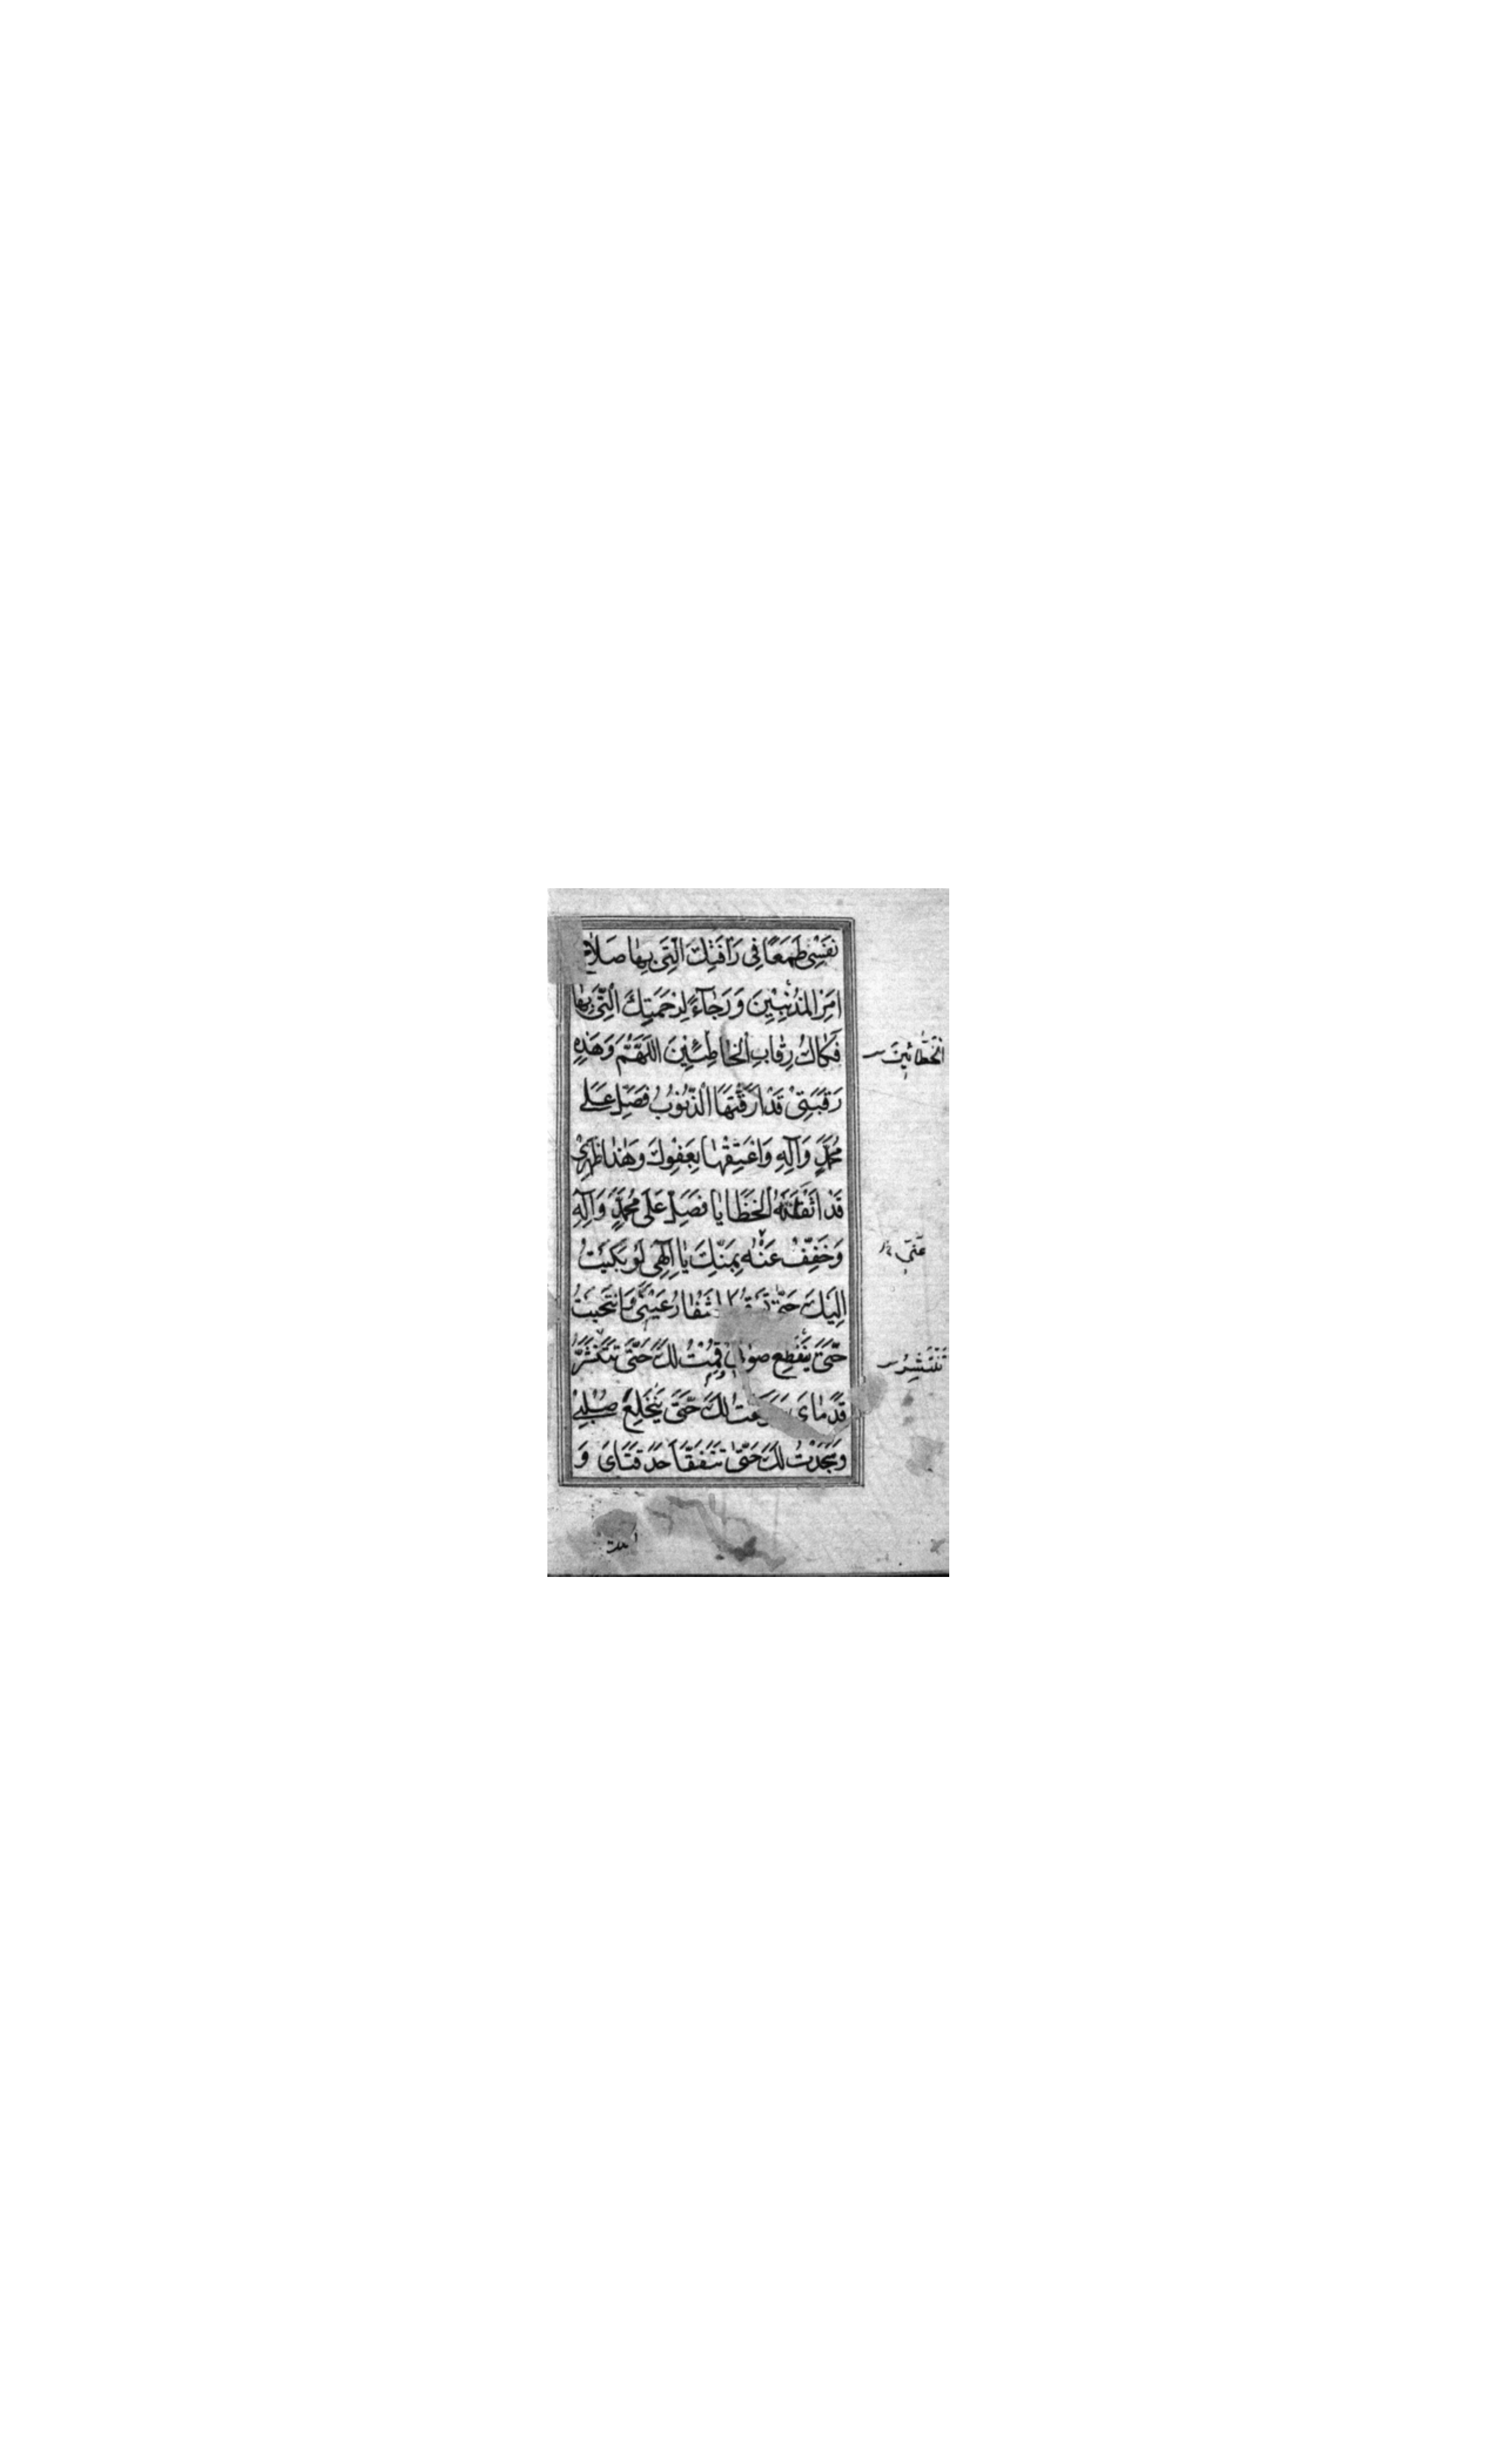 نَفْسِی طَمَعًا فِی رَأْفَتِكَ الَّتِی بِهَا صَلَاحُ
اَمْرِ الْمُذْنِبِینَ وَرَجَآءً لِرَحْمَتِكَ الَّتِی بِهَا
فَكَاكُ رِقَابِ الْخَاطِئِینَ اَللّٰهُمَّ وَهٰذِهِ
رَقَبَتِی قَدْ اَرَقَّتْهَا الذُّنُوبُ فَصَلِّ عَلٰی
مُحَمَّدٍ وَآلِهِ وَاَعْتِقْهَا بِعَفْوِكَ وَهٰذَا ظَهْرِی
قَدْ اَثْقَلَتْهُ الْخَطَایَا فَصَلِّ عَلٰی مُحَمَّدٍ وَآلِهِ
وَخَفِّفْ عَنْهُ بِمَنِّكَ یَا اِلٰهِی لَوْ بَكَیْتُ
اِلَیْكَ حَتّٰی اَشْفَارُ عَیْنَیَّ وَانْتَحَبْتُ
حَتّٰی یَنْقَطِعَ وَقُمْتُ لَكَ حَتّٰی تَتَنَشَّرَ
قَدَمَایَ لَكَ حَتّٰی یَنْخَلِعَ صُلْبِی
وَسَجَدْتُ لَكَ حَتّٰی تَتَفَقَّأَ حَدَقَتَایَ وَ
الْخَطَّائِینَ
عَنِّی
تَنْتَشِرُ